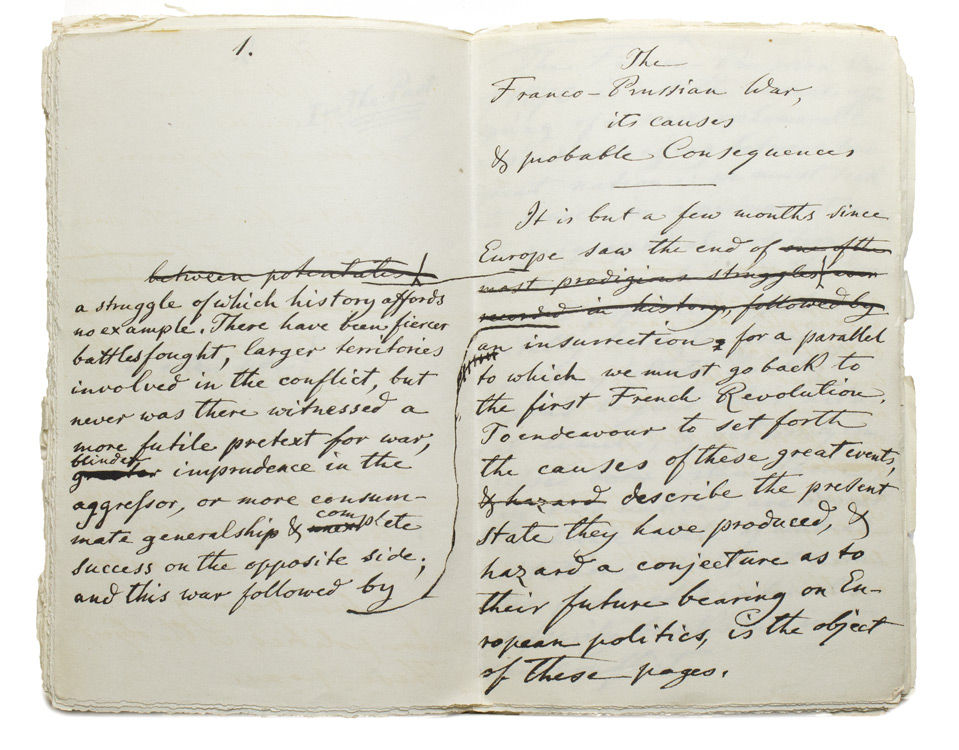 1.
between potentates
a struggle of which history affords
no example. There have been fiercer
battles fought, larger territories
involved in the conflict, but
never was there witnessed a
more futile pretext for war,
blinder
greater imprudence in the
aggressor, or more consum-
com
mate generalship & plete
success on the opposite side;
and this war followed by
The
Franco-Prussian War,
its causes
& probable Consequences
It is but a few months since
Europe saw the end of one of the
most prodigious struggles ever
recorded in history, followed by
an insurrection, for a parallel
to which we must go back to
the first French Revolution.
To endeavour to set forth
the causes of these great events,
& hazard describe the present
state they have produced, &
hazard a conjecture as to
their future bearing on Eu-
ropean politics, is the object
of these pages.